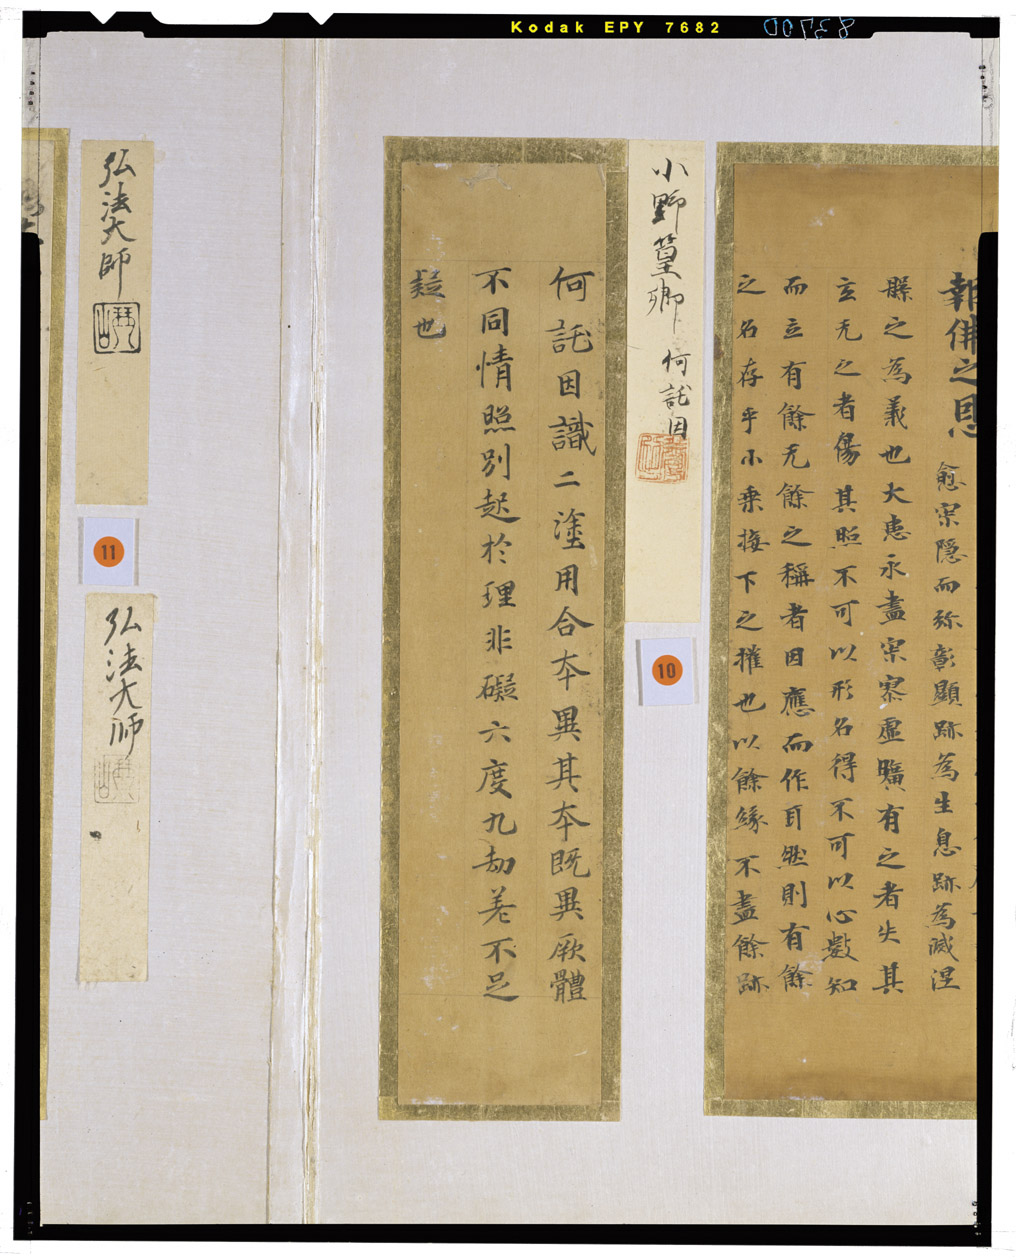 Kodak EPY 7682
報佛之恩
愈㝠隱而弥彰顯跡為生息跡為滅涅
之為義也大患永盡㝠寂虛曠有之者失其
玄无之者傷其照不可以形名得不可以心數知
而立有餘无餘之稱者因應而作耳然則有餘
之名存乎小乘接下之權也以餘緣不盡餘跡
小野篁卿 何託因
10
何託因識二塗用合本異其本既異厥體
不同情照別起於理非礙六度九劫差不足
疑也
弘法大師
11
弘法大師